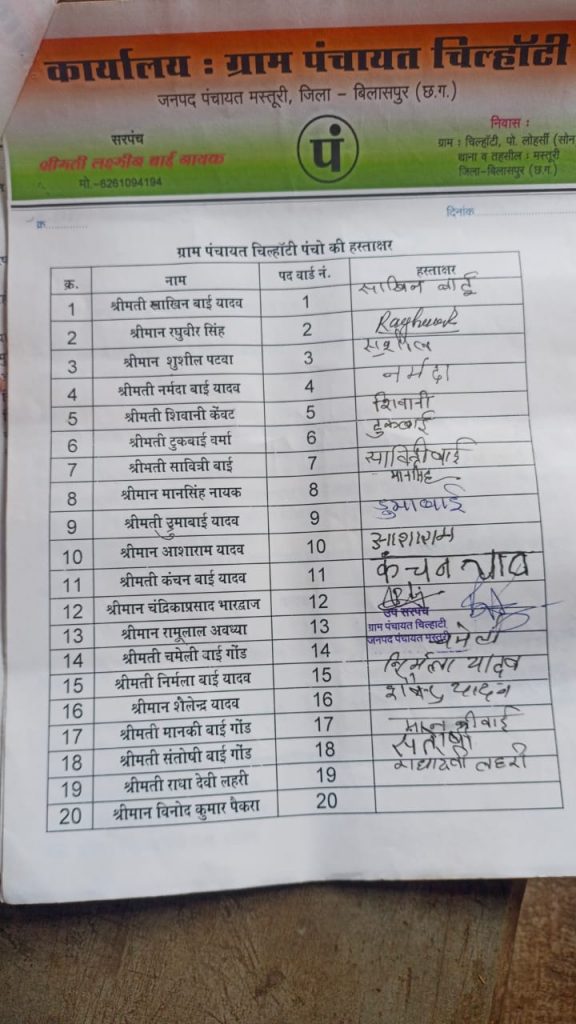 कार्यालय : ग्राम पंचायत चिल्हॉटी
जनपद पंचायत मस्तूरी, जिला – बिलासपुर (छ.ग.)
सरपंच
श्रीमती लक्ष्मीन बाई नायक
मो.-6261094194
पं
निवास :
ग्राम : चिल्हॉटी, पो. लोहर्सी (सोन
थाना व तहसील : मस्तूरी
जिला-बिलासपुर (छ.ग.)
क्र.
दिनांक
ग्राम पंचायत चिल्हॉटी पंचो की हस्ताक्षर
क्र. नाम पद वार्ड नं. हस्ताक्षर
1 श्रीमती साखिन बाई यादव 1 साखिन बाई
2 श्रीमान रघुवीर सिंह 2
3 श्रीमान सुशील पटवा 3 सुशील
4 श्रीमती नर्मदा बाई यादव 4 नर्मदा
5 श्रीमती शिवानी केंवट 5 शिवानी
6 श्रीमती टुकबाई वर्मा 6 टुकबाई
7 श्रीमती सावित्री बाई 7 सावित्री बाई
8 श्रीमान मानसिंह नायक 8 मानसिंह
9 श्रीमती डुमाबाई यादव 9 डुमाबाई
10 श्रीमान आशाराम यादव 10 आशाराम
11 श्रीमती कंचन बाई यादव 11 कंचन
12 श्रीमान चंद्रिकाप्रसाद भारद्वाज 12
उप सरपंच
13 श्रीमान रामूलाल अवध्या 13 ग्राम पंचायत चिल्हाटी
जनपद पंचायत मस्तूरी
14 श्रीमती चमेली बाई गोंड 14 चमेली
15 श्रीमती निर्मला बाई यादव 15 निर्मला यादव
16 श्रीमान शैलेन्द्र यादव 16 यादव
17 श्रीमती मानकी बाई गोंड 17
18 श्रीमती संतोषी बाई गोंड 18 संतोषी
19 श्रीमती राधा देवी लहरी 19 राधादेवी लहरी
20 श्रीमान विनोद कुमार पैकरा 20